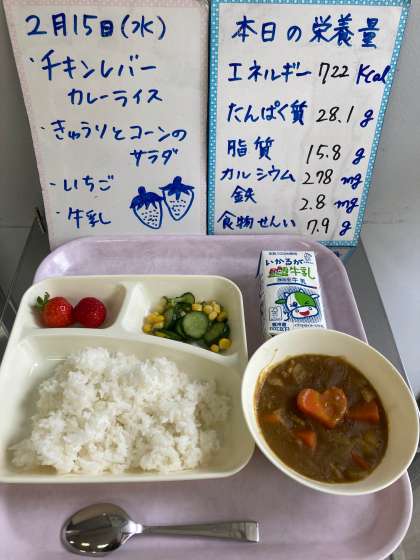 2月15日(水)
・チキンレバー
カレーライス
・きゅうりとコーンの
サラダ
・いちご
・牛乳
本日の栄養量
エネルギー 722 Kcal
たんぱく質 28.1 g
脂質 15.8 g
カルシウム 278 mg
鉄 2.8 mg
食物せんい 7.9 g
いかるが
牛乳